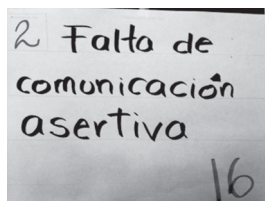 2 Falta de
comunicación
asertiva
16